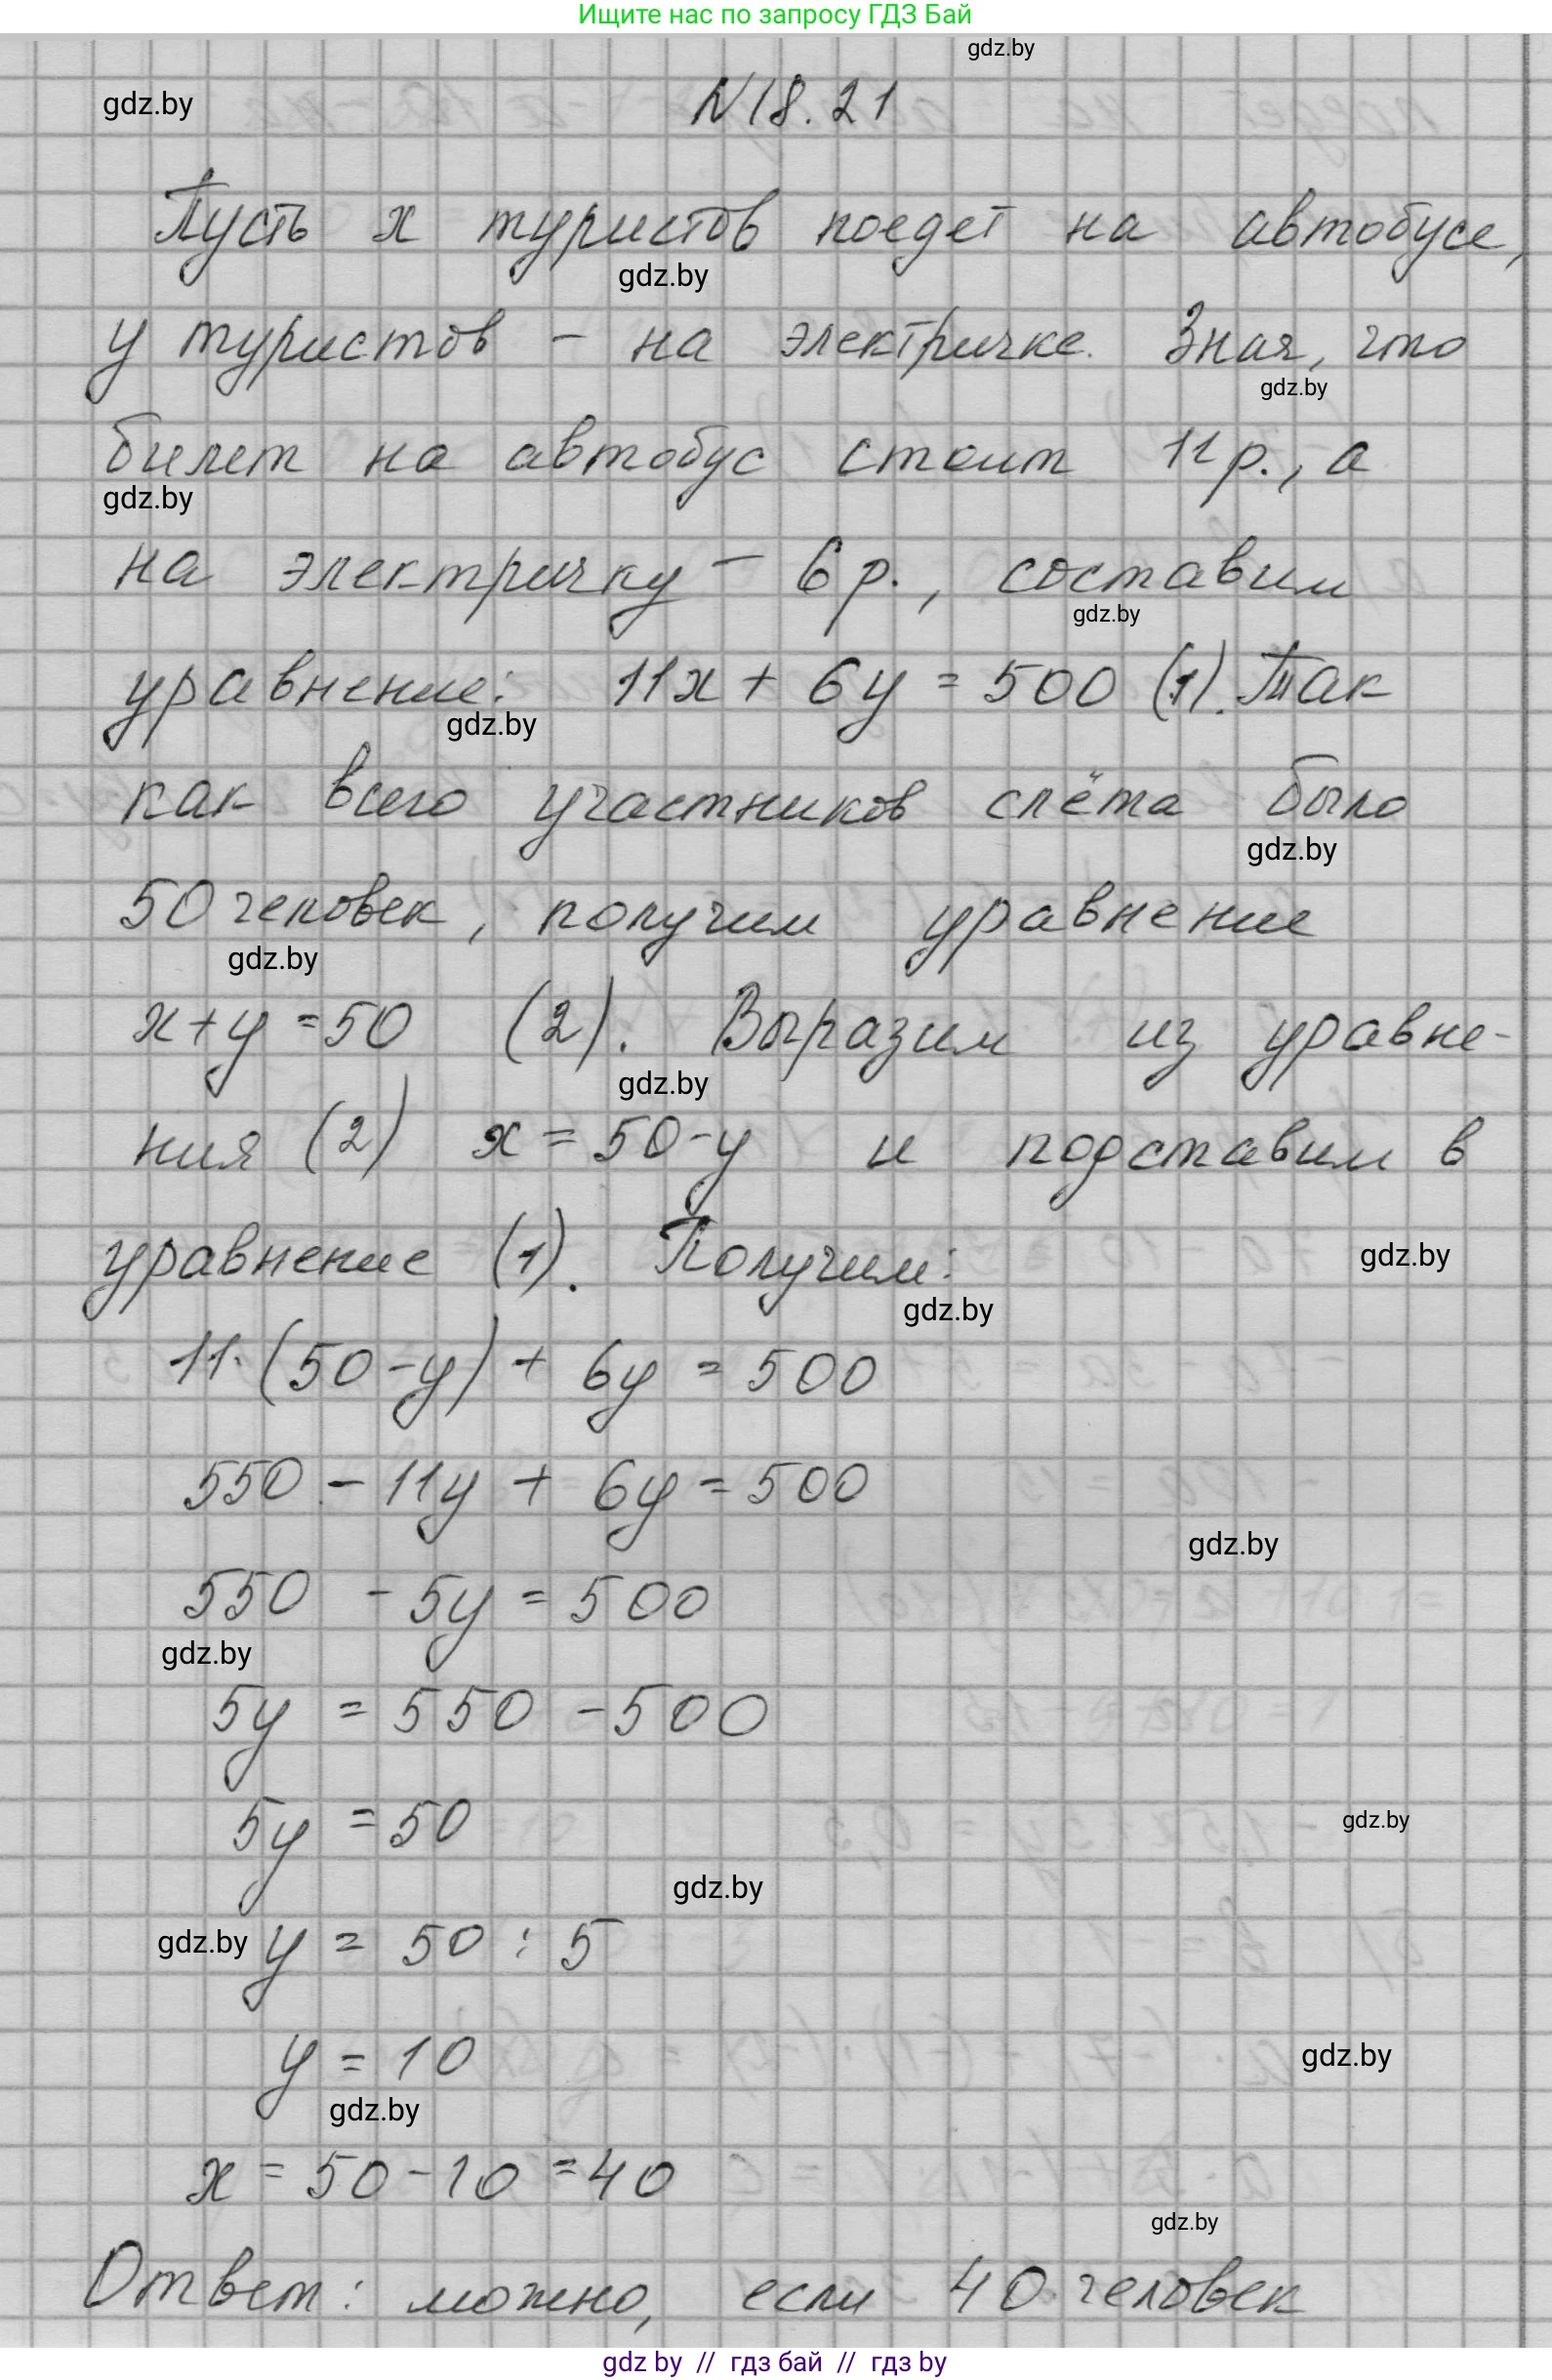 Ищите нас по запросу ГДЗ Бай
gdz.by
gdz.by
N18.21
Пусть x туристов поедет на автобусе,
gdz.by
y туристов - на электричке. Зная, что
gdz.by
билет на автобус стоит 11р., а
gdz.by
на электричку - 6р., составим
gdz.by
уравнение: 11x + 6y = 500 (1). Так
gdz.by
как всего участников слёта было
gdz.by
50 человек, получим уравнение
gdz.by
x+y=50 (2). Выразим из уравне-
gdz.by
ния (2) x=50-y и подставим в
уравнение (1). Получим:
gdz.by
gdz.by
11·(50-y) + 6y = 500
550 - 11y + 6y = 500
gdz.by
550 - 5y = 500
gdz.by
5y = 550 - 500
5y = 50
gdz.by
gdz.by
gdz.by y = 50 : 5
y = 10
gdz.by
gdz.by
x = 50-10 = 40
gdz.by
Ответ: можно, если 40 человек
gdz by // гдз бай // гдз by